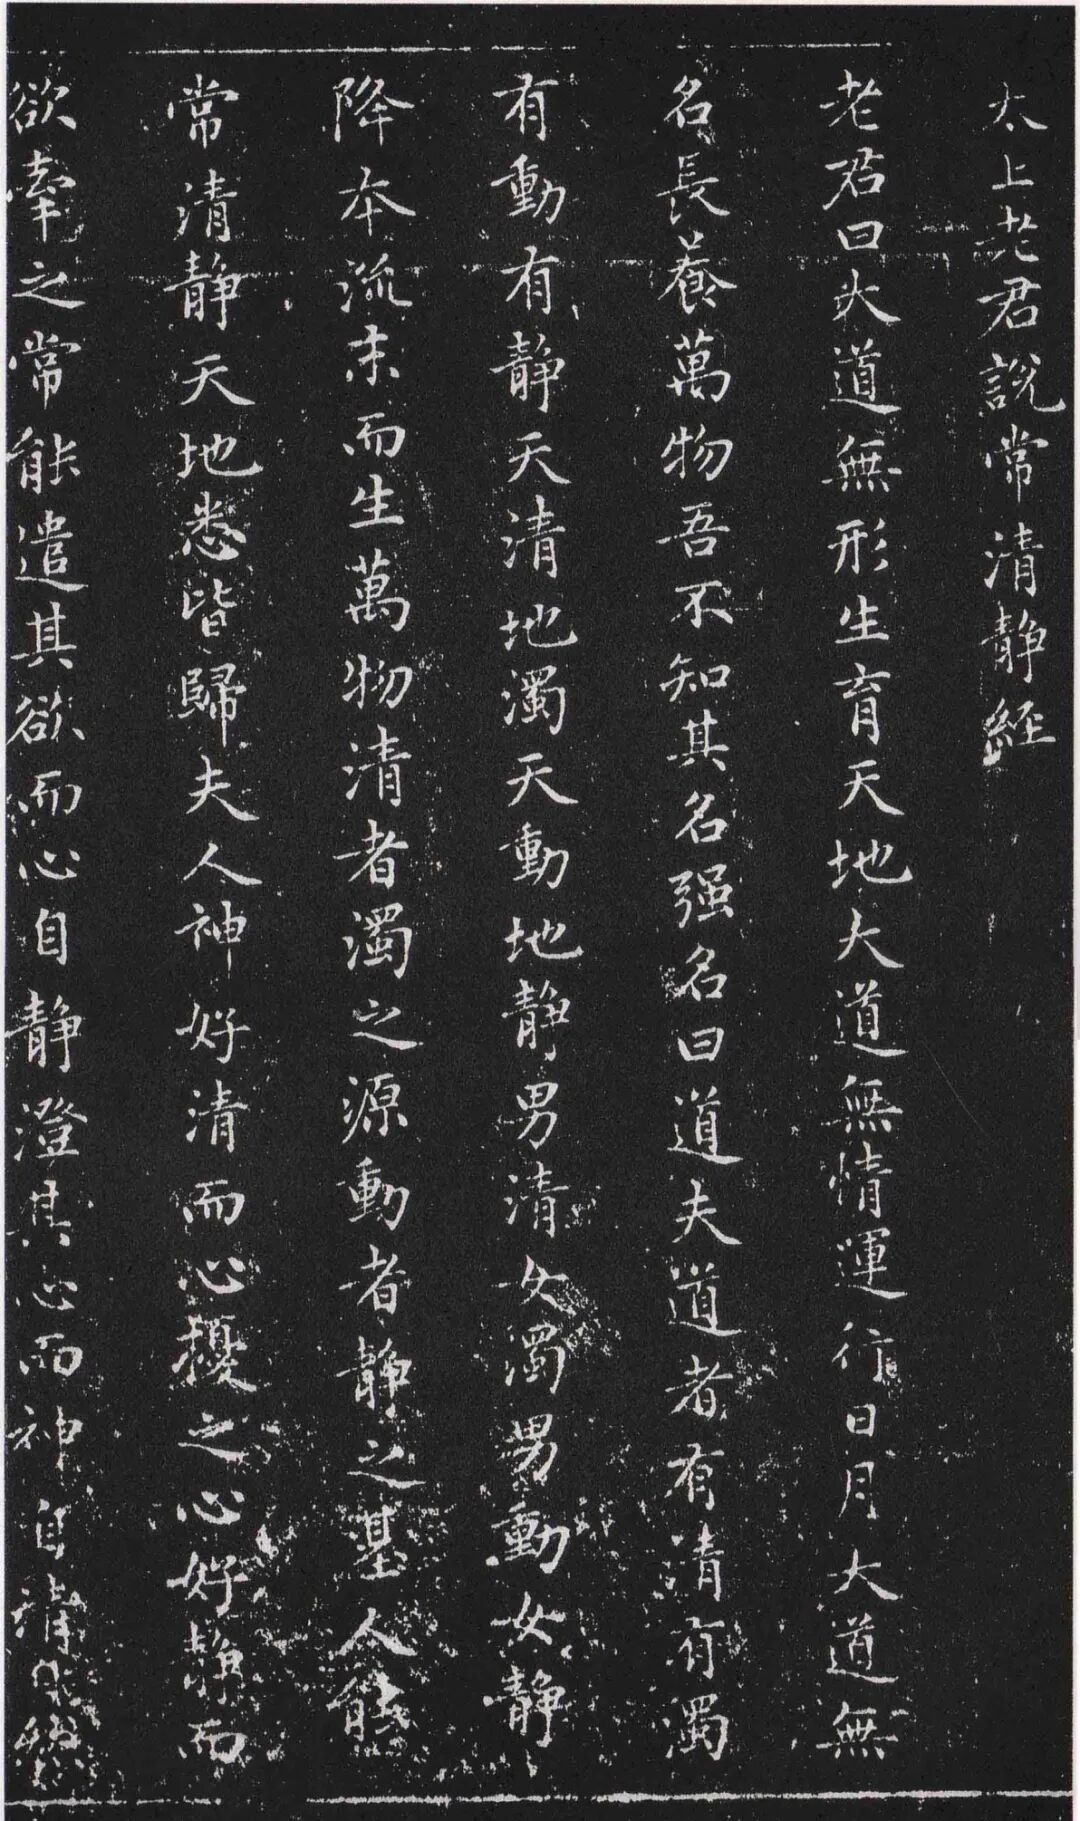 太上老君說常清静經
老君曰大道無形生育天地大道無情運行日月大道無
名長養萬物吾不知其名强名曰道夫道者有清有濁
有動有静天清地濁天動地静男清女濁男動女静
降本流末而生萬物清者濁之源動者静之基人能
常清静天地悉皆歸夫人神好清而心擾之心好静而
欲牽之常能遣其欲而心自静澄其心而神自清